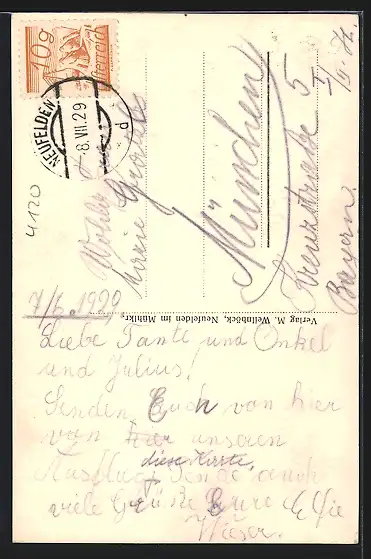 10g
Österreich
NEUFELDEN
8.VII.29
d
4120
München
Kreuzstraße 5
Bayern.
Verlag M. Weinböck, Neufelden im Mühlkr.
7/6. 1929
Liebe Tante und Onkel
und Julius!
Senden Euch von hier
von hier unseren
Ausflug diese Karte,
viele Grüße Eure
Wieser.